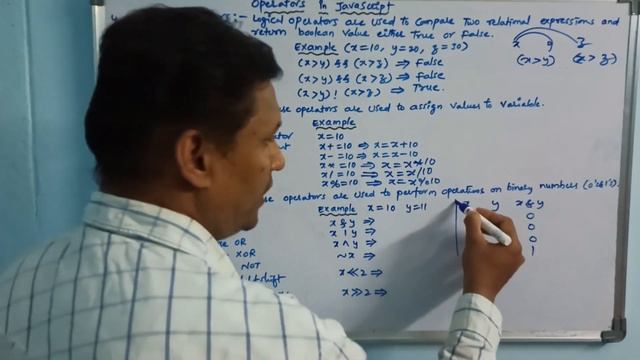 Operators in Javascript
:- Logical operators are used to compare two relational expressions and
return boolean value either True or False.
Example (x=10, y=20, z=30)
(x>y) && (x>z) ⇒ False
(x>y) && (x>z) ⇒ False
(x>y) ! (x>z) ⇒ True.
x y z
(x>y) (x>z)
operators are used to assign values to variable.
Example
x=10
x+=10 ⇒ x=x+10
x-=10 ⇒ x=x-10
x*=10 ⇒ x=x*10
x/=10 ⇒ x=x/10
x%=10 ⇒ x=x%10
operators are used to perform operations on binary numbers (0's&1's).
Example x=10 y=11
x & y ⇒
x | y ⇒
x ^ y ⇒
~x ⇒
x<<2 ⇒
x>>2 ⇒
OR
XOR
NOT
y x&y
0
0
0
1